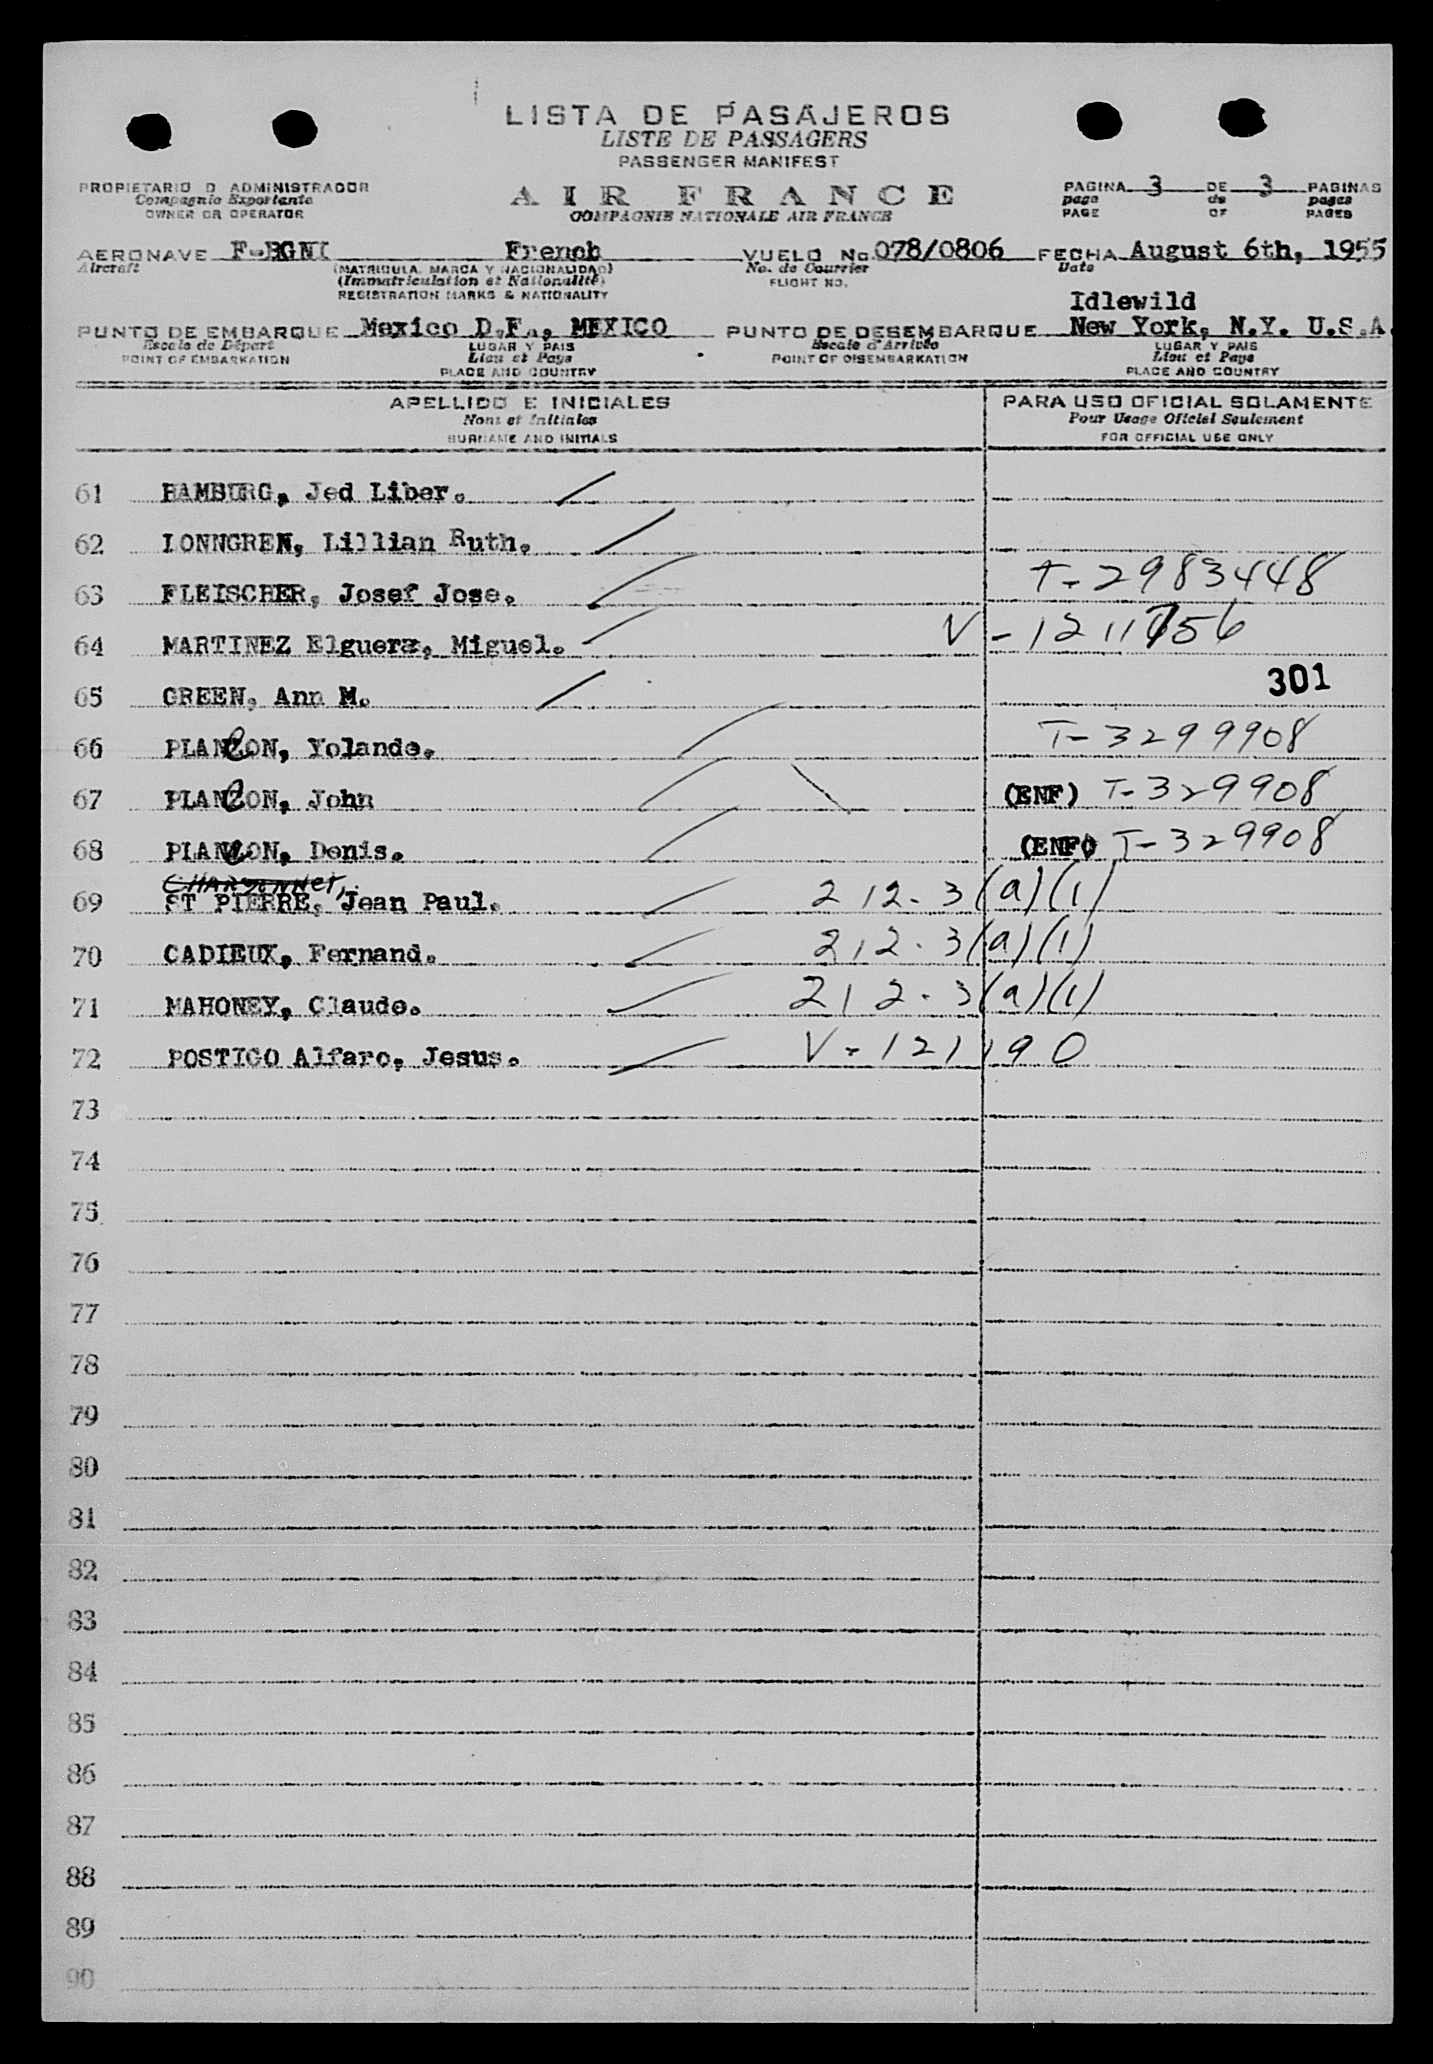 LISTA DE PASAJEROS
LISTE DE PASSAGERS
PASSENGER MANIFEST
PROPIETARIO O ADMINISTRADOR
Compagnie Exportante
OWNER OR OPERATOR
AIR FRANCE
COMPAGNIE NATIONALE AIR FRANCE
PAGINA 3 DE 3 PAGINAS
page de pages
PAGE OF PAGES
AERONAVE F-BGNI French VUELO No. 078/0806 FECHA August 6th, 1955
Aircraft (MATRICULA, MARCA Y NACIONALIDAD) No. de Courrier Date
(Immatriculation et Nationalité) FLIGHT NO.
REGISTRATION MARKS & NATIONALITY
Idlewild
PUNTO DE EMBARQUE Mexico D.F., MEXICO PUNTO DE DESEMBARQUE New York, N.Y. U.S.A.
Escale de Départ LUGAR Y PAIS Escale d'Arrivée LUGAR Y PAIS
POINT OF EMBARKATION Lieu et Pays POINT OF DISEMBARKATION Lieu et Pays
PLACE AND COUNTRY PLACE AND COUNTRY
APELLIDO E INICIALES PARA USO OFICIAL SOLAMENTE
Nons et Initiales Pour Usage Oficiel Seulement
SURNAME AND INITIALS FOR OFFICIAL USE ONLY
61 HAMBURG, Jed Liber.
62 LONNGREN, Lillian Ruth.
63 FLEISCHER, Josef Jose. T-2983448
64 MARTINEZ Elguera, Miguel. V-1211756
65 GREEN, Ann M. 301
66 PLANCON, Yolande. T-3299908
67 PLANCON, John (ENF) T-329908
68 PLANCON, Denis. (ENF) T-329908
69 ST PIERRE, Jean Paul. 212.3(a)(1)
70 CADIEUX, Fernand. 212.3(a)(1)
71 MAHONEY, Claude. 212.3(a)(1)
72 POSTIGO Alfaro, Jesus. V-1211190
73
74
75
76
77
78
79
80
81
82
83
84
85
86
87
88
89
90